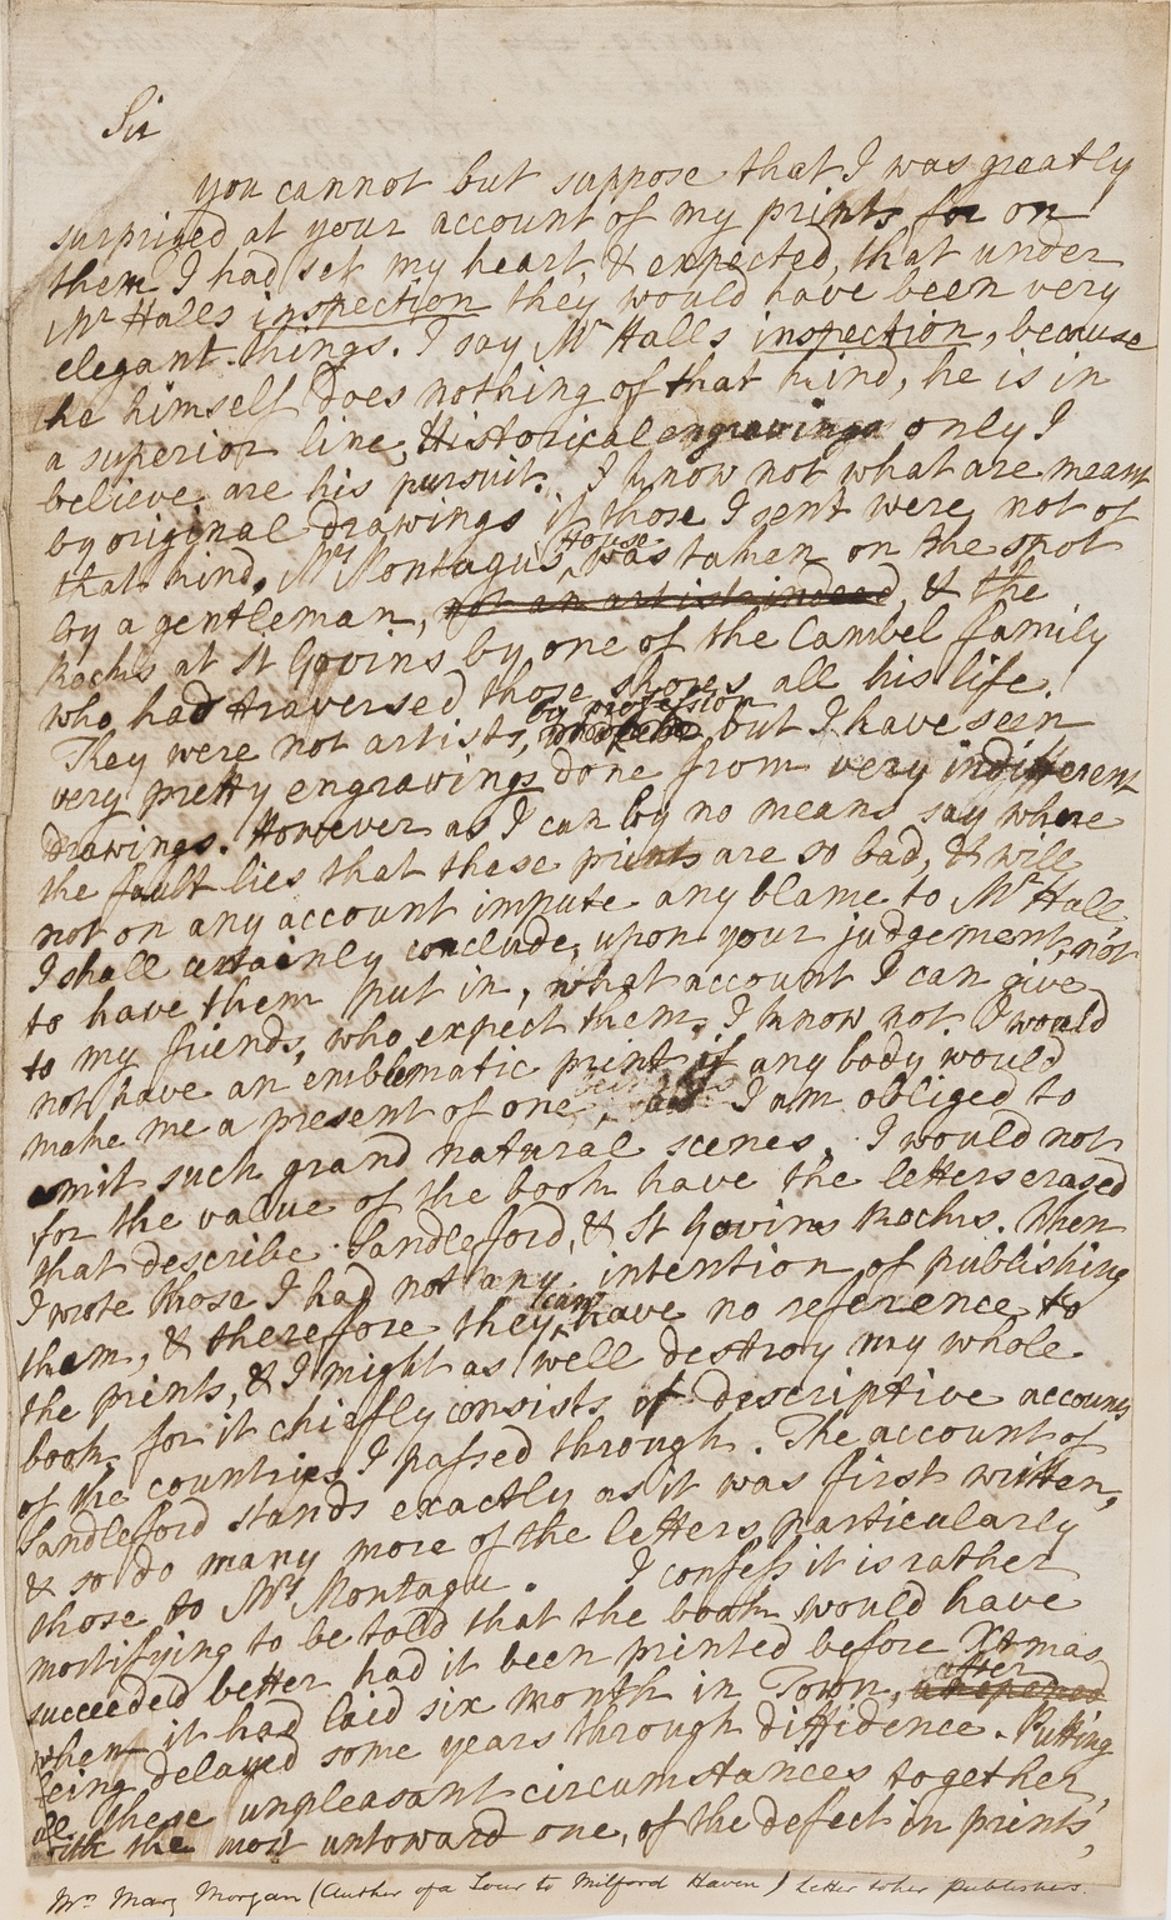 Sir
you cannot but suppose that I was greatly
surprized at your account of my prints for on
them I had set my heart, & expected, that under
Mr Halls inspection they would have been very
elegant things. I say Mr Halls inspection, because
he himself does nothing of that kind, he is in
a superior line, Historical engravings only I
believe are his pursuit. I know not what are meant
by original drawings if those I sent were not of
that kind, Mrs Montagu's House was taken on the spot
by a gentleman, not an artist indeed, & the
Rocks at St Govins by one of the Cambel family
who had traversed those shores all his life.
They were not artists, by profession but I have seen
very pretty engravings done from very indifferent
drawings. However as I can by no means say where
the fault lies that these prints are so bad, & will
not on any account impute any blame to Mr Hall
I shall certainly conclude, upon your judgement, not
to have them put in, what account I can give
to my friends, who expect them, I know not. I would
not have an emblematic print if any body would
make me a present of one, as I am obliged to
omit such grand natural scenes. I would not
for the value of the book have the letters erased
that describe Sandleford, & St Govins Rocks. When
I wrote those I had not any intention of publishing
them, & therefore they can have no reference to
the prints, & I might as well destroy my whole
book, for it chiefly consists of descriptive accounts
of the countries I passed through. The account of
Sandleford stands exactly as it was first written,
& so do many more of the letters particularly
those to Mrs Montagu. I confess it is rather
mortifying to be told that the book would have
succeeded better had it been printed before Xtmas
when it had laid six month in Town, after
being delayed some years through diffidence. Putting
all these unpleasant circumstances together,
with the most untoward one, of the defect in prints,
Mrs Mary Morgan (Author of a Tour to Milford Haven) Letter to her Publishers.